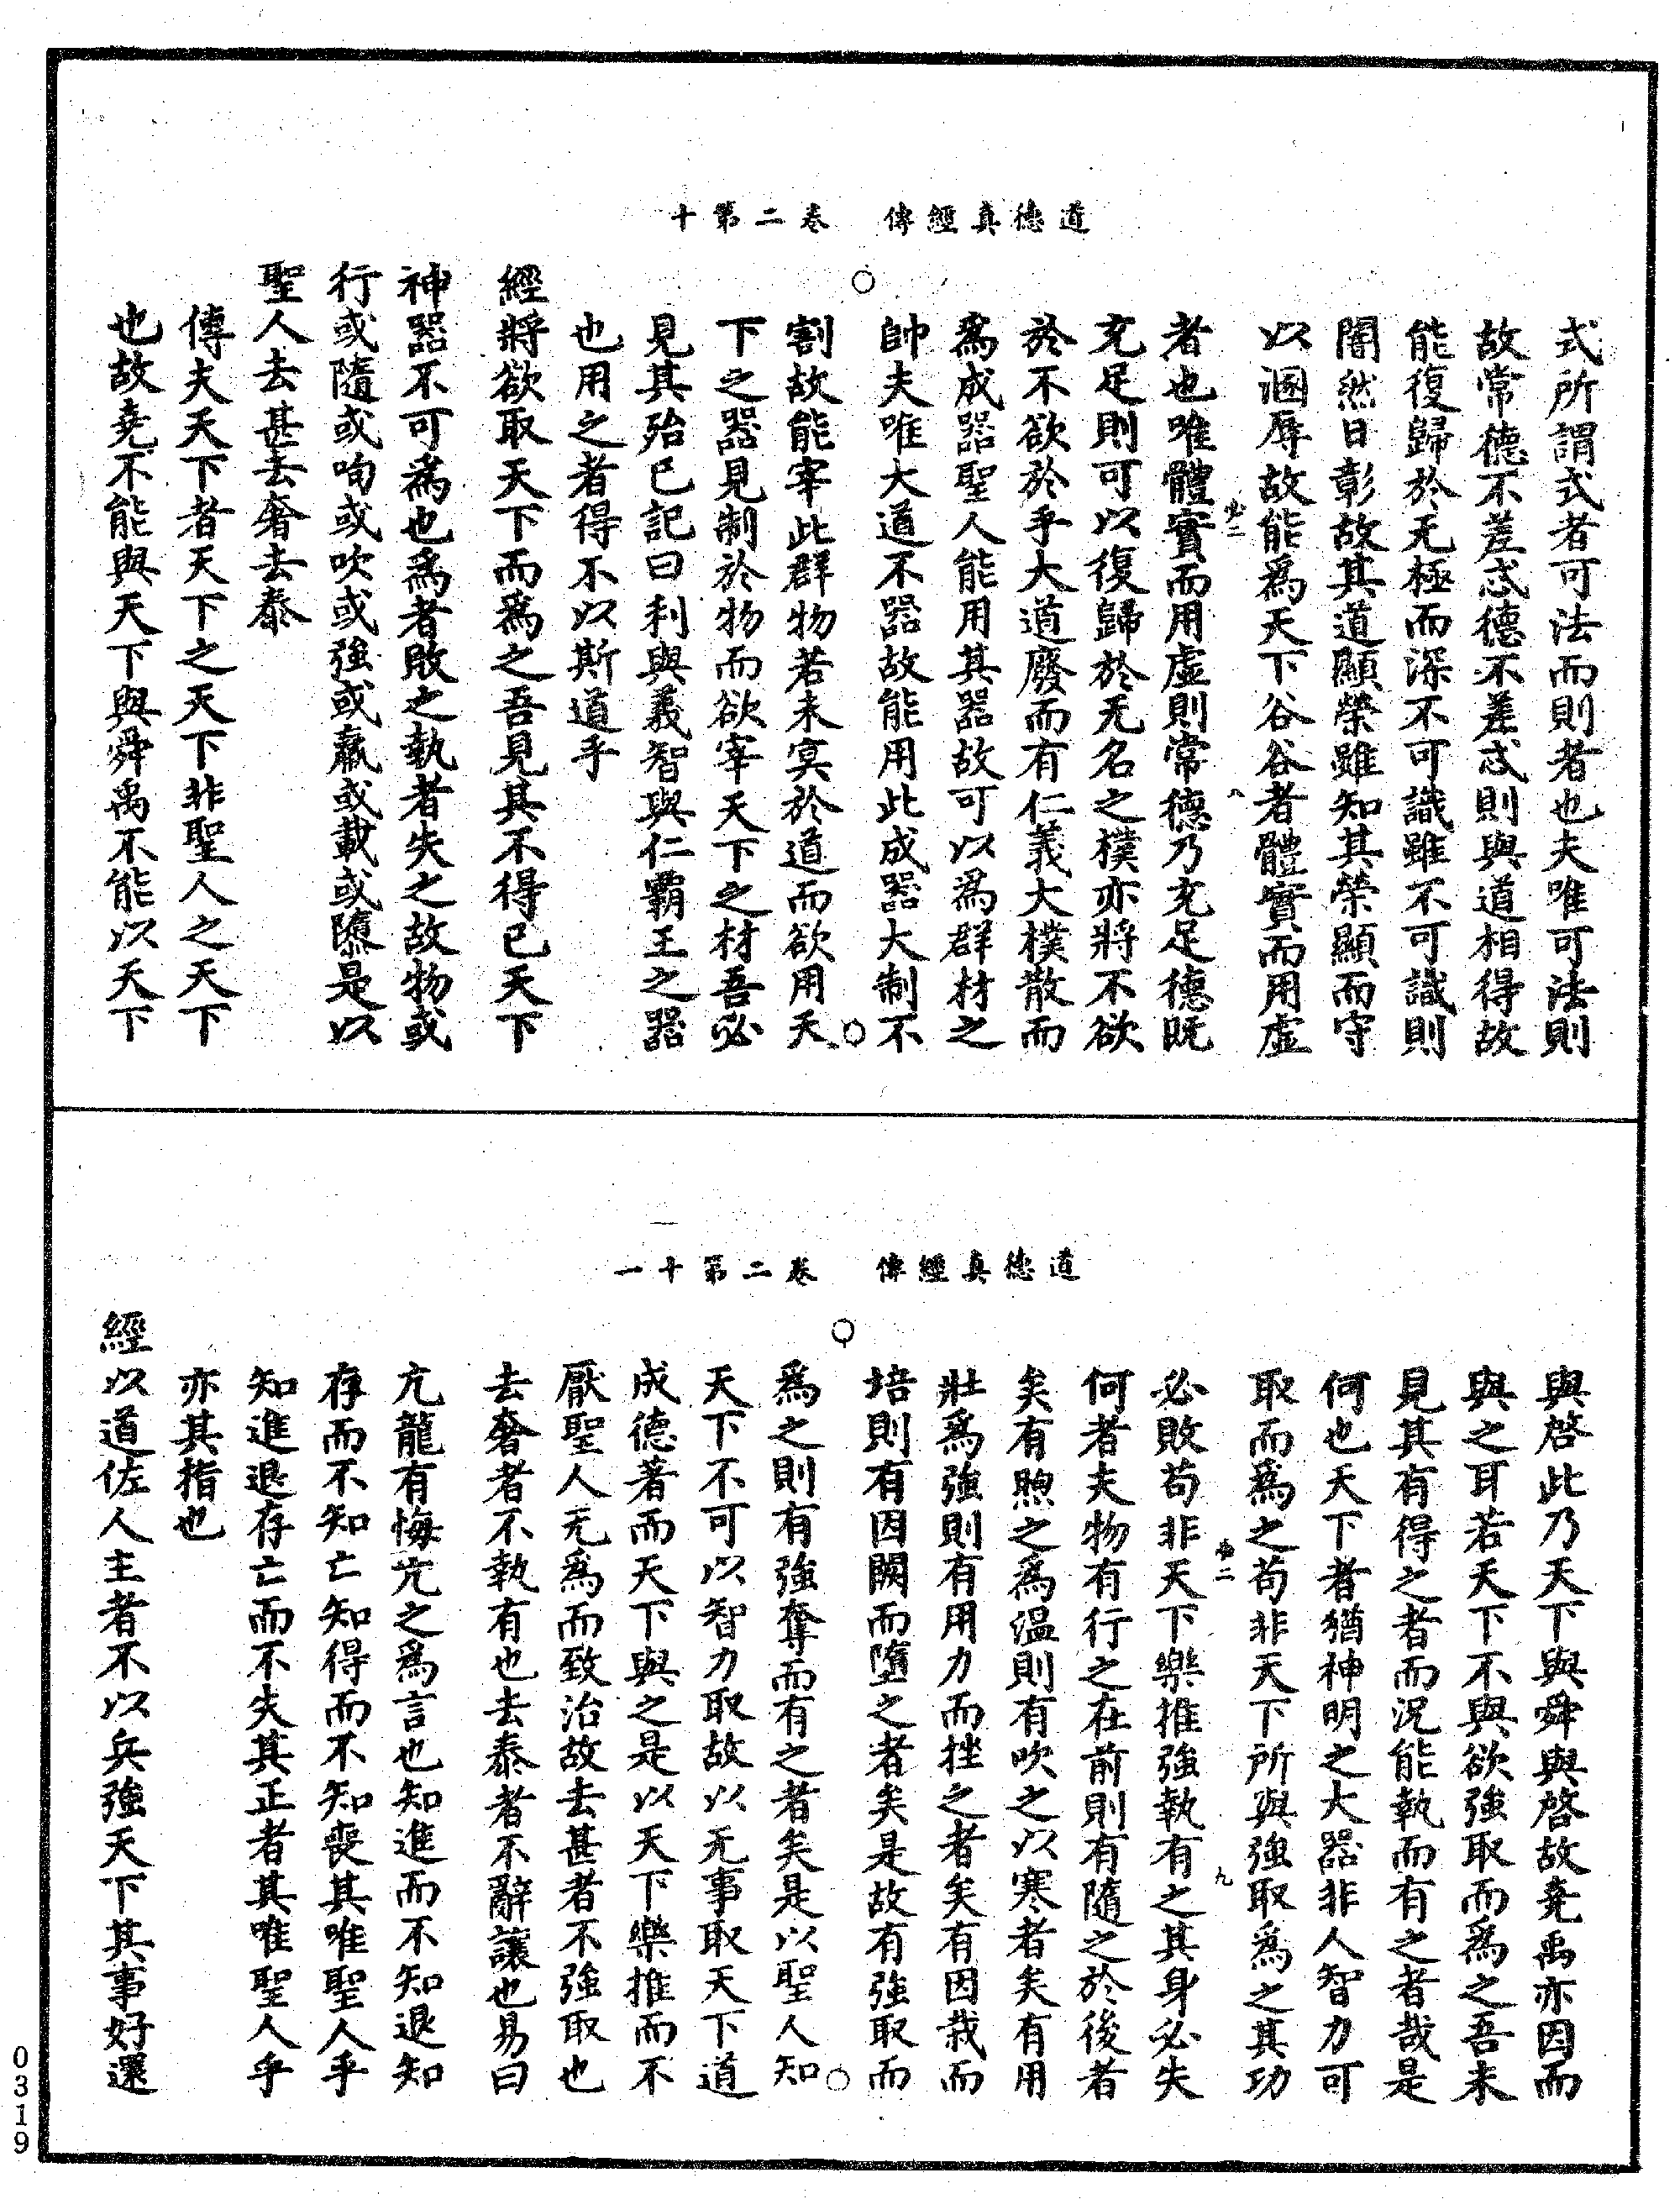 道德真經傳　卷二第十
式所謂式者可法而則者也夫唯可法則
故常德不差忒德不差忒則與道相得故
能復歸於无極而深不可識雖不可識則
闇然日彰故其道顯榮雖知其榮顯而守
以溷辱故能爲天下谷谷者體實而用虛
必二　八
者也唯體實而用虛則常德乃充足德既
充足則可以復歸於无名之樸亦將不欲
於不欲於乎大道廢而有仁義大樸散而
爲成器聖人能用其器故可以爲群材之
帥夫唯大道不器故能用此成器大制不
割故能宰此群物若未冥於道而欲用天
下之器見制於物而欲宰天下之材吾必
見其殆已記曰利與義智與仁霸王之器
也用之者得不以斯道乎
經將欲取天下而爲之吾見其不得已天下
神器不可爲也爲者敗之執者失之故物或
行或隨或呴或吹或強或羸或載或隳是以
聖人去甚去奢去泰
傳夫天下者天下之天下非聖人之天下
也故堯不能與天下與舜禹不能以天下
道德真經傳　卷二第十一
與啓此乃天下與舜與啓故堯禹亦因而
與之耳若天下不與欲強取而爲之吾未
見其有得之者而況能執而有之者哉是
何也天下者猶神明之大器非人智力可
取而爲之苟非天下所與強取爲之其功
必二　九
必敗苟非天下樂推強執有之其身必失
何者夫物有行之在前則有隨之於後者
矣有煦之爲溫則有吹之以寒者矣有用
壯爲強則有用力而挫之者矣有因栽而
培則有因闕而墮之者矣是故有強取而
爲之則有強奪而有之者矣是以聖人知
天下不可以智力取故以无事取天下道
成德著而天下與之是以天下樂推而不
厭聖人无爲而致治故去甚者不強取也
去奢者不執有也去泰者不辭讓也易曰
亢龍有悔亢之爲言也知進而不知退知
存而不知亡知得而不知喪其唯聖人乎
知進退存亡而不失其正者其唯聖人乎
亦其指也
經以道佐人主者不以兵強天下其事好還
0319